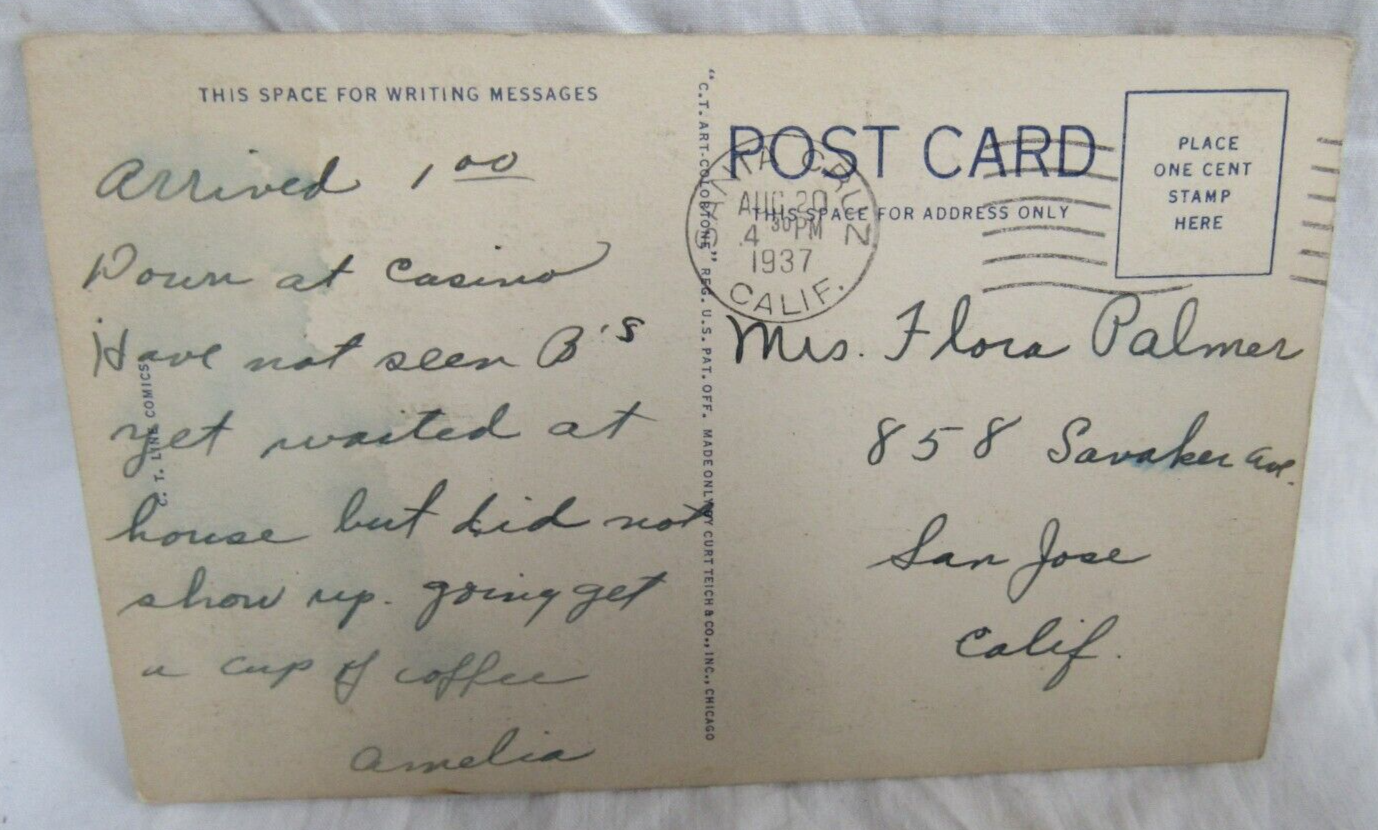 THIS SPACE FOR WRITING MESSAGES
Arrived 1 00
Down at Casino
Have not seen B's
yet waited at
house but did not
show up. going get
a cup of coffee
Amelia
C. T. LINE COMICS
"C.T. ART-COLORTONE" REG. U.S. PAT. OFF. MADE ONLY BY CURT TEICH & CO., INC., CHICAGO
POST CARD
THIS SPACE FOR ADDRESS ONLY
PLACE
ONE CENT
STAMP
HERE
SANTA CRUZ
AUG 20
4 30 PM
1937
CALIF.
Mrs. Flora Palmer
858 Savaker ave.
San Jose
Calif.